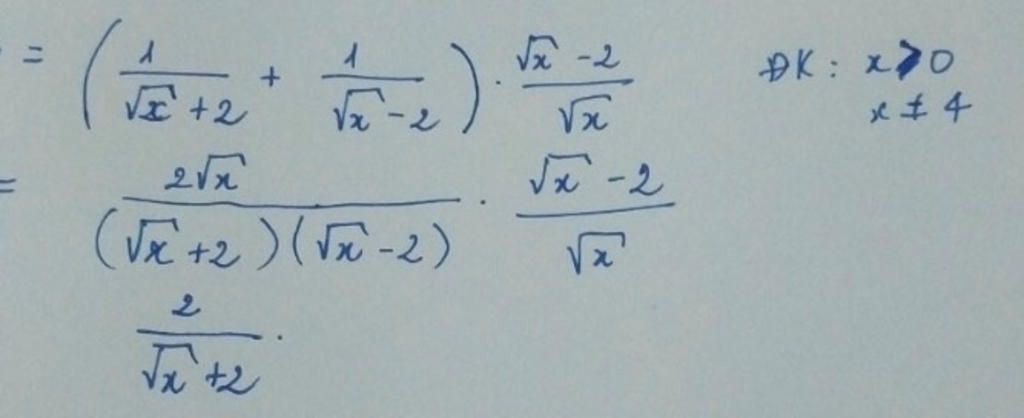 = ( 1/(√x + 2) + 1/(√x - 2) ) . (√x - 2)/√x ĐK : x > 0
x ≠ 4
= 2√x/((√x + 2)(√x - 2)) . (√x - 2)/√x
2/(√x + 2) .